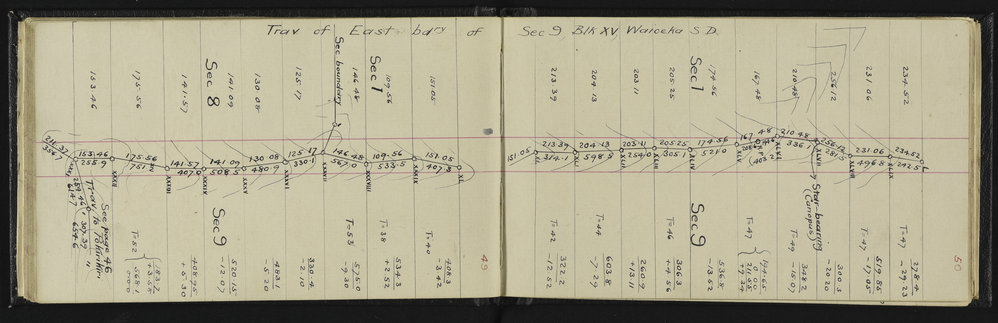 Trav of East bdry of
Sec 9, Blk XV, Waioeka S.D.
49
50
153.46
175.56
141.57
Sec 8
141.09
130.08
125.17
Sec boundary
146.48
Sec 1
109.56
151.05
211.37
336.7
153.46
255.9
175.56
751.2
141.57
407.0
141.09
508.5
130.08
480.9
125.17
330.1
146.48
567.0
109.56
533.5
151.05
407.3
XXXII
XXXIII
XXXIV
XXXV
XXXVI
XXXVII
XXXVIII
XXXIX
XL
See page 46
Trav. to Pokirikiri
Sec 9
T=52
T=53
T=38
T=40
408.95
+ 5.30
520.15
-12.07
483.1
- 5.20
330.4
-2.10
575.0
-9.30
534.3
+2.52
408.3
-3.42
213.39
204.13
203.11
205.25
Sec 1
174.56
167.48
210.48
256.12
231.06
234.52
151.05
213.39
314.1
204.13
598.5
203.11
254.0
205.25
305.1
174.56
521.0
167.48
210.48
336.1
256.12
281.5
231.06
496.8
234.52
242.5
XLI
XLII
XLIII
XLIV
XLV
XLVI
XLVII
XLVIII
XLIX
L
Star-bearing
(Canopus)
Sec 9
T=42
T=44
T=46
T=47
T=49
T=47
T=47
322.2
-12.52
603.8
-7.29
260.9
+13.11
306.3
+4.56
536.8
-13.52
348.2
-15.07
300.3
-20.20
519.85
-17.05
278.4
-29.23